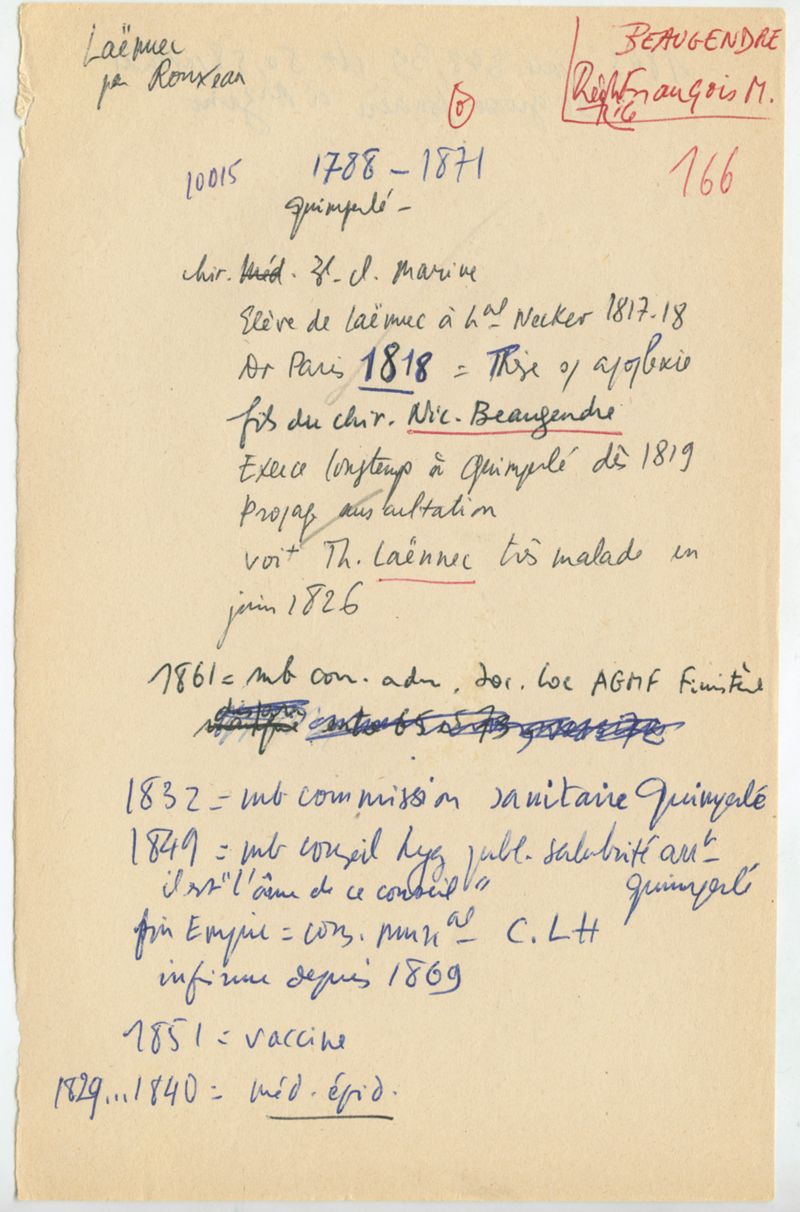 Laënnec
par Rouxeau
BEAUGENDRE
François M.
166
10015
1788 – 1871
Quimperlé –
chir. Méd. 3e cl. marine
Elève de Laënnec à hal Necker 1817-18
Dr Paris 1818 = Thèse s/ apoplexie
fils du chir. Nic. Beaugendre
Exerce longtemp à Quimperlé dès 1819
Propage auscultation
voit Th. Laënnec très malade en
juin 1826
1861 = mb con. adm. soc. loc AGMF Finistère
1832 = mb commission sanitaire Quimperlé
1849 = mb conseil hyg publ. salubrité arrt
il est "l'âme de ce conseil" Quimperlé
fin Empire = cons. mun al C. L H
infirme depuis 1869
1851 = vaccine
1829...1840 = méd. épid.